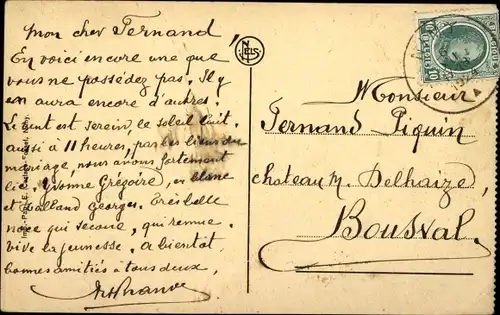 mon cher Fernand,
En voici encore une que
vous ne possédez pas. Il y
en aura encore d'autres.
Le vent est serein, le soleil luit.
aussi à 11 heures, par les liens du
mariage, nous avons fortement
lié Yvonne Grégoire, en blanc
et Balland Georges. Très belle
noce qui secoue, qui remue.
Vive la jeunesse. A bientôt
bonnes amitiés à tous deux,
NELS
Monsieur
Fernand Piquin
chateau M. Delhaize,
Bousval.